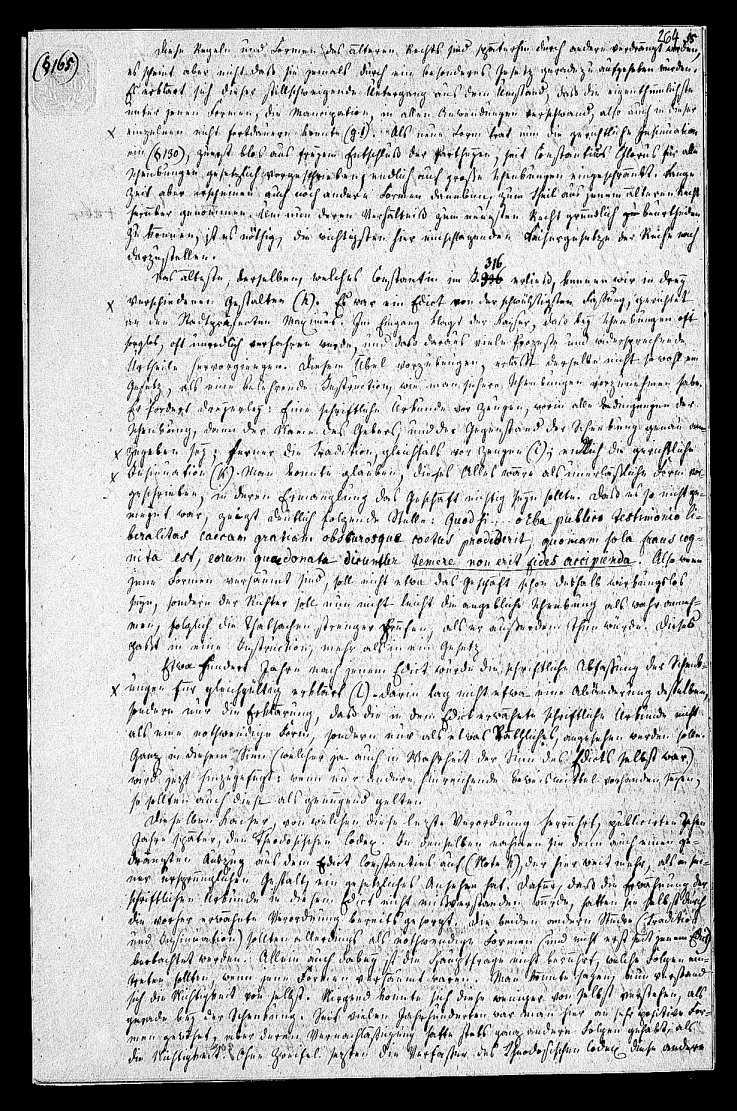 264 55
(§165)
Diese Regeln und Formen des älteren Rechts sind späterhin durch andere verdrängt worden,
es scheint aber nicht daß sie jemals durch ein besonderes Gesetz geradezu aufgehoben wurden.
Es erklärt sich dieser stillschweigende Untergang aus dem Umstand, daß die eigenthümlichste
unter jenen Formen, die Mancipation, in allen Anwendungen verschwand, also auch in dieser
einzelnen nicht fortdauern konnte (g.1). Als neue Form trat nun die gerichtliche Insinuation
ein (§130), zuerst blos aus freyem Entschluß der Partheyen, seit Constantius Chlorus für alle
Schenkungen gesetzlich vorgeschrieben, endlich auf große Schenkungen eingeschränkt. Lange
Zeit aber erscheinen auch noch andere Formen daneben, zum Theil aus jenem älteren Recht
herüber genommen. Um nun deren Verhältniß zum neuesten Recht gründlich zu beurtheilen
zu können, ist es nöthig, die wichtigsten hier einschlagenden Kaisergesetze der Reihe nach
darzustellen.
Das älteste, derselben, welches Constantin im J. 316 erließ, kennen wir in drey
verschiedenen Gestalten (h). Es war ein Edict von der schwülstigsten Fassung, gerichtet
an den Stadtpräfecten Maximus. Im Eingang klagt der Kaiser, daß bey Schenkungen oft
sorglos, oft unredlich verfahren werde, und daß daraus viele Prozesse und widersprechende
Urtheile hervorgiengen. Diesem Übel vorzubeugen, erläßt derselbe nicht sowohl ein
Gesetz, als eine belehrende Instruction, wie man sichere Schenkungen vorzunehmen habe.
Er fordert dreyerley: Eine schriftliche Urkunde vor Zeugen, worin alle Bedingungen der
Schenkung, dann der Name des Gebers, und der Gegenstand der Schenkung genau an-
zugeben sey; ferner die Tradition, gleichfalls vor Zeugen (i); endlich die gerichtliche
Insinuation (k). Man könnte glauben, dieses Alles wäre als unerläßliche Form vor-
geschrieben, in deren Ermanglung das Geschäft nichtig seyn sollte. Daß es so nicht ge-
meynt war, zeigt deutlich folgende Stelle: Quod si ... orba publico testimonio li-
beralitas caecam gratiam obscurosque coetus prodiderit, quoniam sola fraus cog-
nita est, eorum quae donata dicuntur temere non erit fides accipienda. Also wenn
jene Formen versäumt sind, soll nicht etwa das Geschäft schon deshalb wirkungslos
seyn, sondern der Richter soll nun nicht leicht die angebliche Schenkung als wahr anneh-
men, folglich die Thatsachen strenger prüfen, als er außerdem thun würde. Dieses
paßt in eine Instruction, mehr als in ein Gesetz.
Etwa hundert Jahre nach jenem Edict wurde die schriftliche Abfassung der Schenk-
ungen für gleichgültig erklärt (l). Darin lag nicht etwa eine Abänderung desselben,
sondern nur die Erklärung, daß die in dem Edict erwähnte schriftliche Urkunde nicht
als eine nothwendige Form, sondern nur als etwas Räthliches, angesehen werden sollte.
Ganz in diesem Sinn (welcher ja auch in Wahrheit der Sinn des Edicts selbst war)
wird jetzt hinzugefügt: wenn nur andere, hinreichende Beweismittel vorhanden seyen,
so sollten auch diese als genügend gelten.
Dieselben Kaiser, von welchen diese letzte Verordnung herrührt, publicirten zehen
Jahre später, den Theodosischen Codex. In denselben nahmen sie denn auch einen ge-
drängten Auszug aus dem Edict Constantins auf (Note h), der hier weit mehr, als in sei-
ner ursprünglichen Gestalt, ein gesetzliches Ansehen hat. Dafür, daß die Erwähnung der
schriftlichen Urkunde in diesem Edict nicht misverstanden würde, hatten sie selbst durch
die vorher erwähnte Verordnung bereits gesorgt. Die beiden andern Stücke (Tradition
und Insinuation) sollten allerdings als nothwendige Formen (und nicht erst seit jenem Edict)
beobachtet werden. Allein auch dabey ist die Hauptfrage nicht berührt, welche Folgen ein-
treten sollten, wenn jene Formen versäumt waren. Man könnte sagen, nun verstand
sich die Nichtigkeit von selbst. Nirgend konnte sich diese weniger von selbst verstehen, als
gerade bey der Schenkung. Seit vielen Jahrhunderten war man hier an sehr positive For-
men gewöhnt, aber deren Vernachläßigung hatte stets ganz andere Folgen gehabt, als
die Nichtigkeit. Ohne Zweifel setzten die Verfasser des Theodosischen Codex diese andere